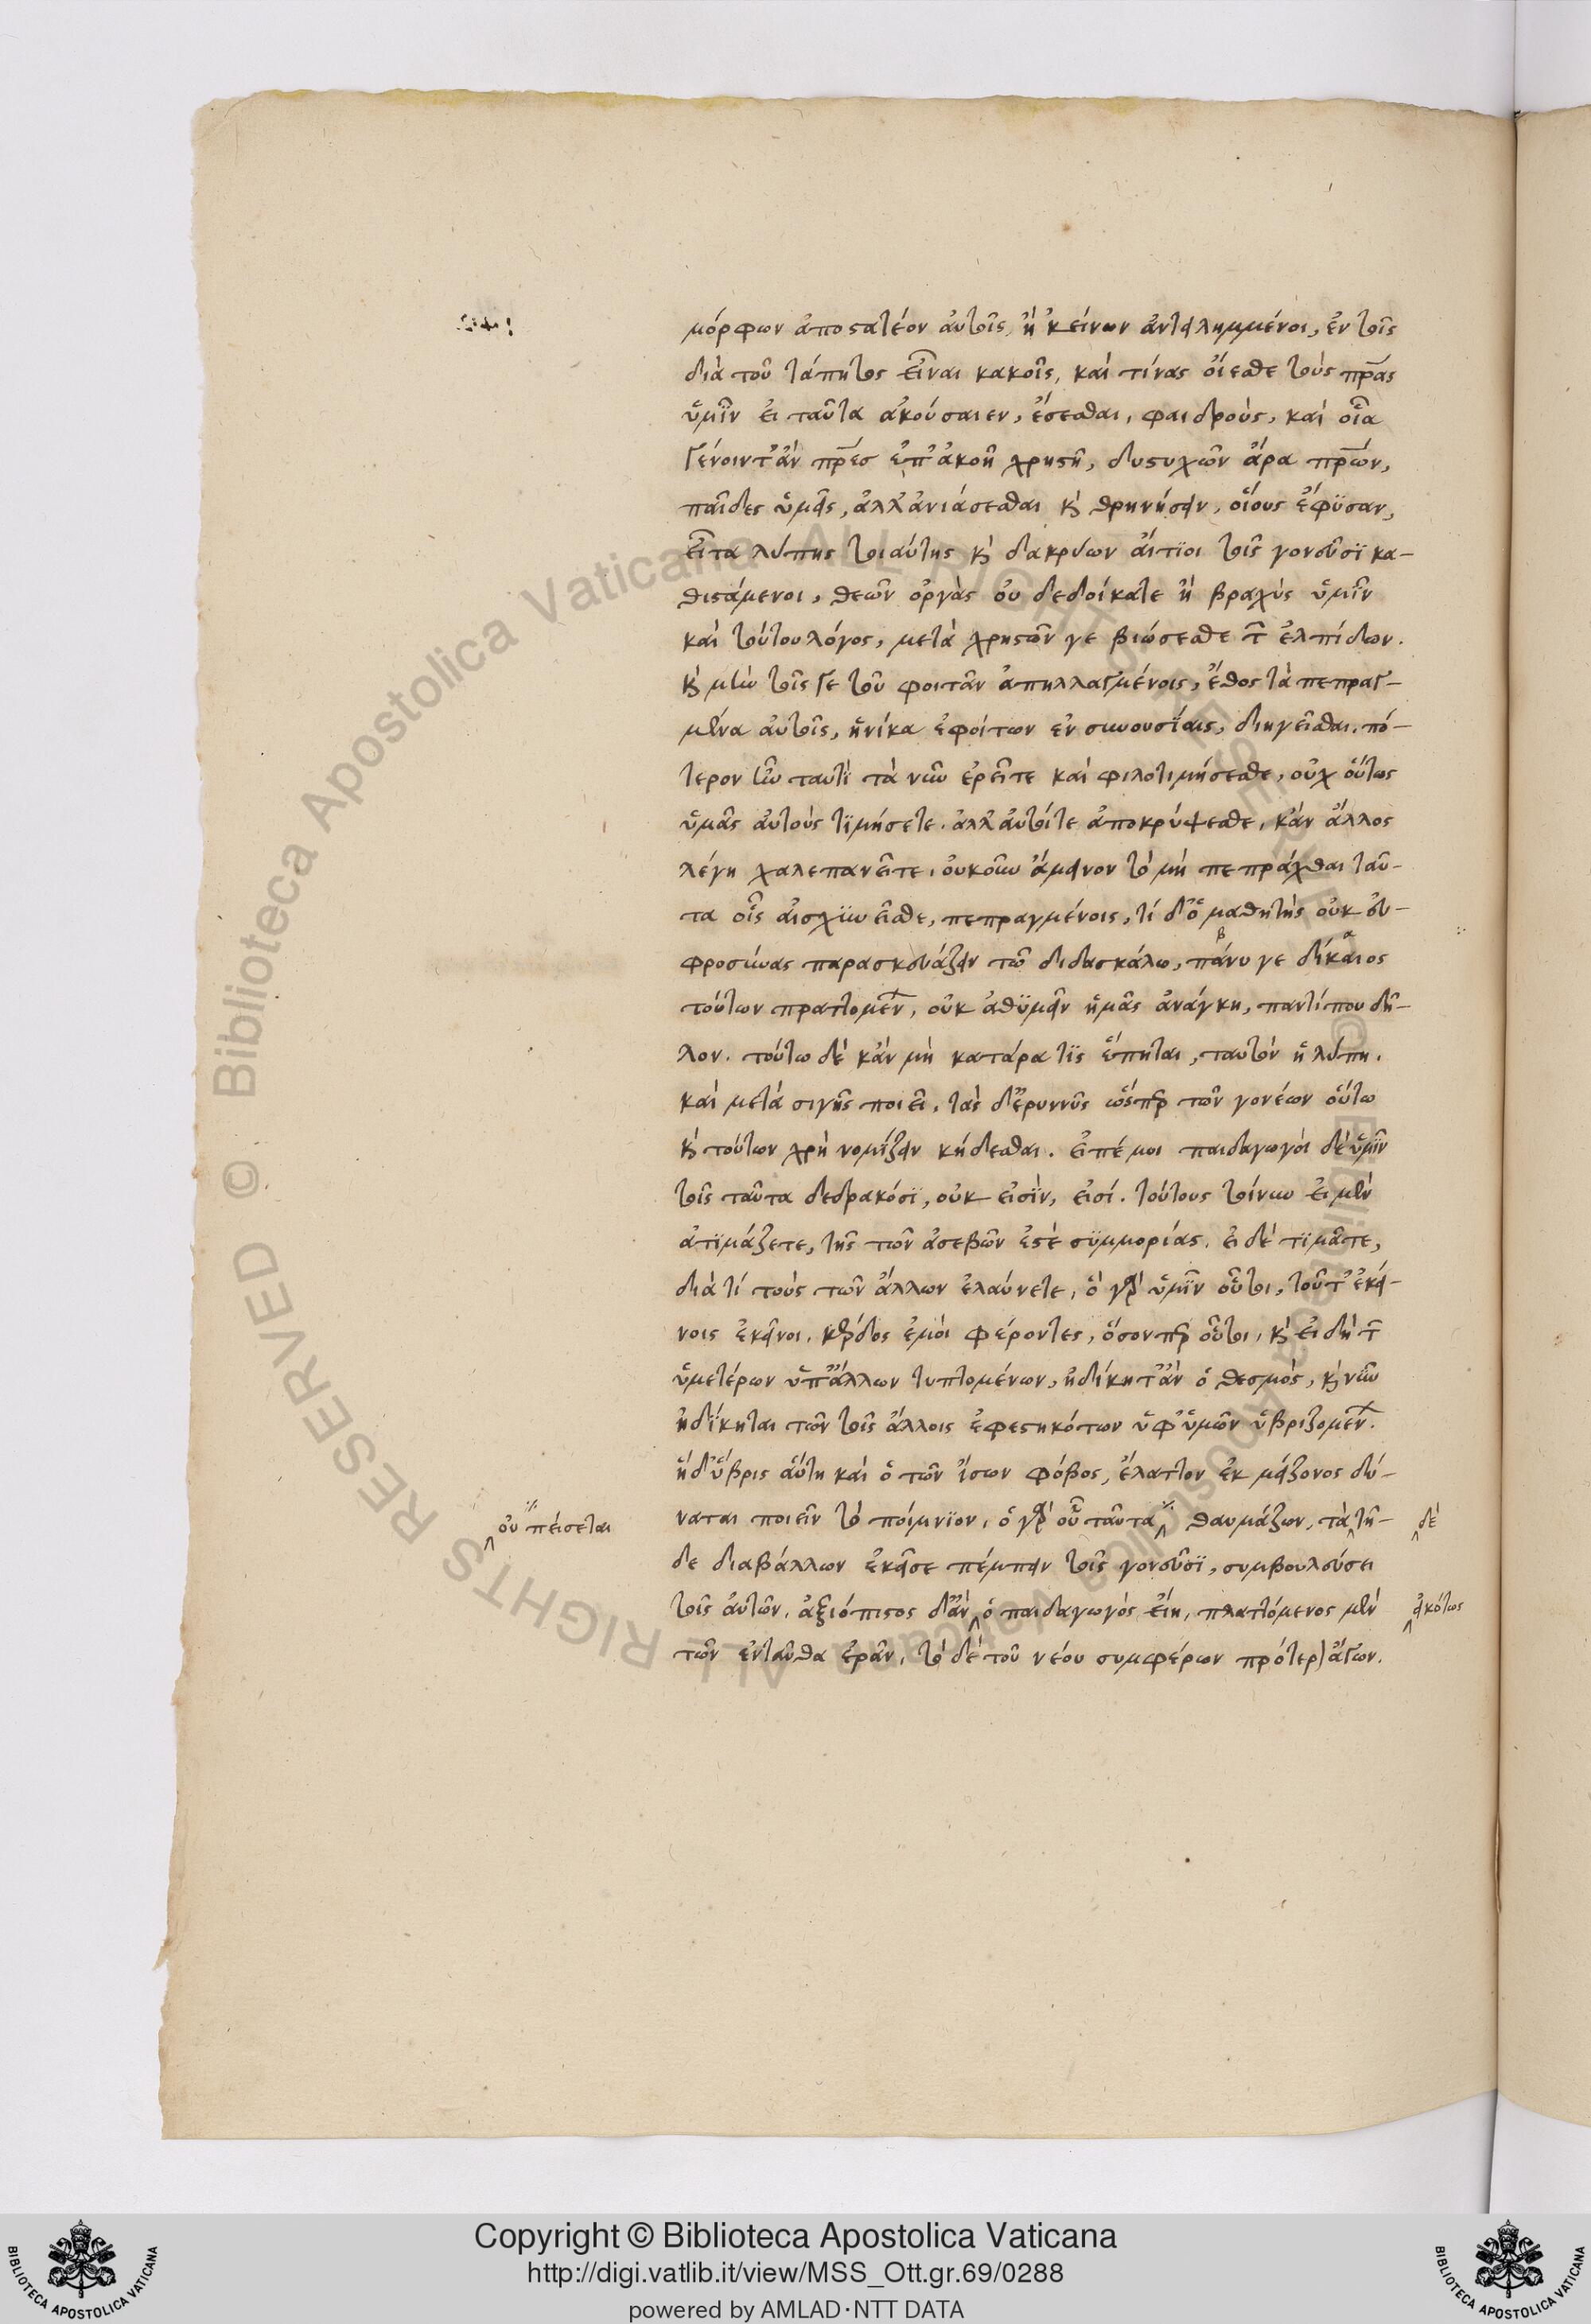 μόρφων ἀποστατέον αὐτοῖς, ἢ κείνων ἀντειλημμένοι, ἐν τοῖς
διὰ τοῦ τάπητος εἶναι κακοῖς, καὶ τίνας οἴεσθε τοὺς πρ̅ας
ὑμῖν εἰ ταῦτα ἀκούσαιεν, ἔσεσθαι, φαιδροὺς, καὶ οἷα
γένοιντ' ἂν πρ̅ες ἐπ' ἀκοῇ χρηστῇ, δυστυχῶν ἄρα πρ̅ων,
παῖδες ὑμεῖς, ἀλλ' ἀνιάσεσθαι κ̀ θρηνήσειν, οἵους ἔφϋσαν,
εἶτα λύπης τοιαύτης κ̀ δακρύων αἴτϊοι τοῖς γονεῦσϊ κα-
θιστάμενοι, θεῶν ὀργὰς οὐ δεδοίκατε ἢ βραχὺς ὑμῖν
καὶ τούτου λόγος, μετὰ χρηστῶν γε βιώσεσθε τ̑ ἐλπίδων.
κ̀ μὴν τοῖς γε τοῦ φοιτᾶν ἀπηλλαγμένοις, ἔθος τὰ πεπραγ-
μένα αὐτοῖς, ἡνίκα ἐφοίτων ἐν συνουσίαις, διηγεῖσθαι. πό-
τερον οὖν ταυτὶ τὰ νῦν ἐρεῖτε καὶ φιλοτιμήσεσθε, οὐχ οὕτως
ὑμᾶς αὐτοὺς τϊμήσετε. ἀλλ' αὐτοί τε ἀποκρύψεσθε, κἂν ἄλλος
λέγη χαλεπανεῖτε, οὐκοῦν ἄμεινον τὸ μὴ πεπράχθαι ταῦ-
τα οἷς αἰσχϋνεῖσθε, πεπραγμένοις, τί δ' ὁ μαθητὴς οὐκ εὐ-
φροσύνας παρασκευάζειν τῶ διδασκάλω, πάνυ γε δίκαιος
τούτων πραττομέν, οὐκ ἀθϋμεῖν ἡμᾶς ἀνάγκη, παντί που δῆ-
λον. τούτω δὲ κἂν μὴ κατάρα τϊς ἕπηται, ταυτὸν ἡ λύπη.
καὶ μετὰ σιγῆς ποιεῖ. τὰς δ' ἐρυννῦς ὥσπρ τῶν γονέων οὕτω
κ̀ τούτων χρὴ νομΐζειν κήδεσθαι. εἰπέ μοι παιδαγωγοὶ δὲ ὑμῖν
τοῖς ταῦτα δεδρακόσϊ, οὐκ εἰσῒν, εἰσί. τούτους τοίνυν εἰ μὲν
ἀτϊμάζετε, τῆς τῶν ἀσεβῶν ἐστὲ σϋμμορίας. εἰ δὲ τϊμᾶτε,
διὰ τί τοὺς τῶν ἄλλων ἐλαύνετε, ὃ γὰρ ὑμῖν οὗτοι, τοῦτ' ἐκεί-
νοις ἐκεῖνοι. κέρδος ἐμοὶ φέροντες, ὅσονπρ οὗτοι, κ̀ εἰ δὴ τ̑
ὑμετέρων ὑπ' ἄλλων τυπτομένων, ἠδίκητ' ἂν ὁ θεσμὸς, κ̀ νῦν
ἠδίκηται τῶν τοῖς ἄλλοις ἐφεστηκότων ὑφ' ὑμῶν ὑβριζομέν.
ἡ δ' ὕβρις αὕτη καὶ ὁ τῶν ἴσων φόβος, ἔλαττον ἐκ μείζονος δύ-
ναται ποιεῖν τὸ ποίμνϊον, ὁ γὰρ οὖν ταῦτα ‸ θαυμάζων, τὰ ‸ τῇ-
‸ οὐ πείσεται
‸ δὲ
δε διαβάλλων ἐκεῖσε πέμπειν τοῖς γονεῦσϊ, συμβουλεύσει
τοῖς αὐτῶν. ἀξιόπιστος δ' ἂν ‸ ὁ παιδαγωγὸς εἴη, πλαττόμενος μὲν
‸ εἰκότως
τῶν ἐνταῦθα ἐρᾶν, τὸ δὲ τοῦ νέου συμφέρων πρότερ) ἄγων.
Copyright © Biblioteca Apostolica Vaticana
http://digi.vatlib.it/view/MSS_Ott.gr.69/0288
powered by AMLAD·NTT DATA